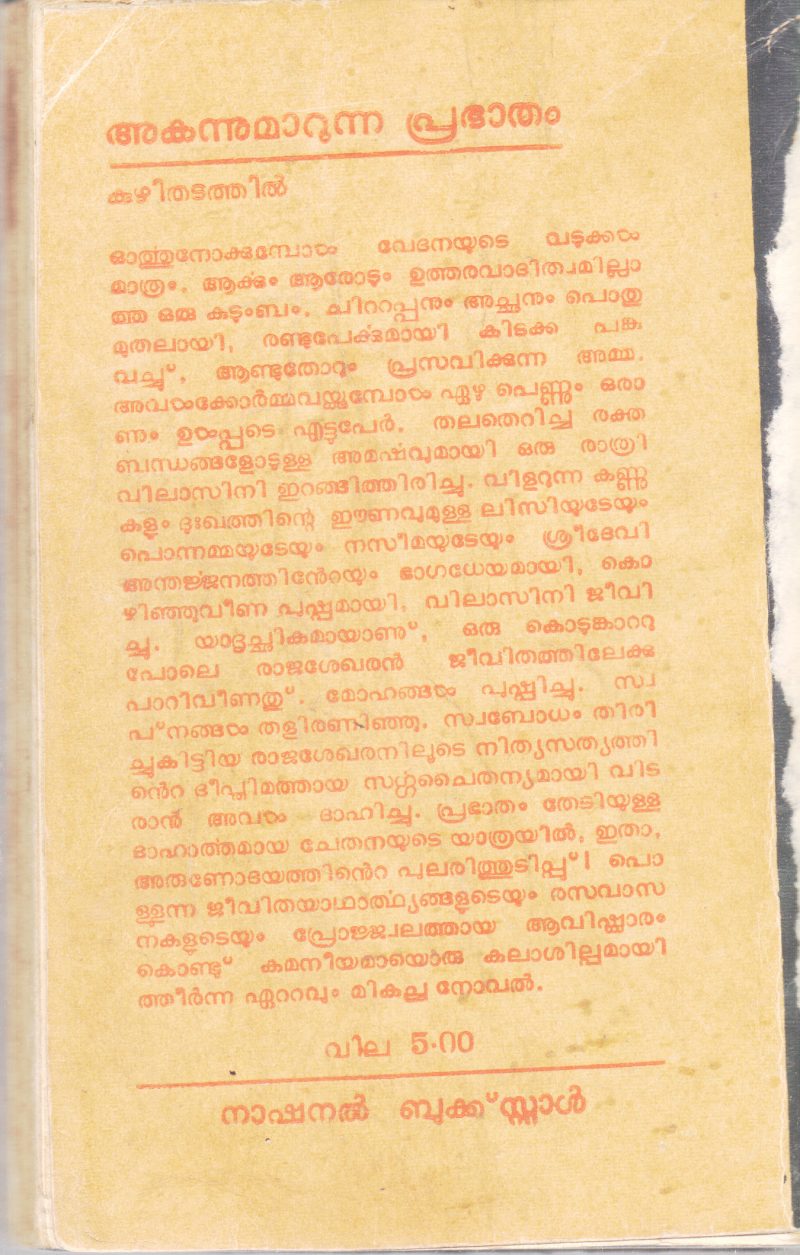 അകന്നുമാറുന്ന പ്രഭാതം
കുഴിതടത്തിൽ
ഓർത്തുനോക്കുമ്പോൾ വേദനയുടെ വടുക്കൾ
മാത്രം. ആർക്കും ആരോടും ഉത്തരവാദിത്വമില്ലാ
ത്ത ഒരു കുടുംബം. ചിററപ്പനും അച്ഛനും പൊതു
മുതലായി, രണ്ടുപേർക്കുമായി കിടക്ക പങ്കു
വച്ച്, ആണ്ടുതോറും പ്രസവിക്കുന്ന അമ്മ.
അവൾക്കോർമ്മവയ്ക്കുമ്പോൾ ഏഴു പെണ്ണും ഒരാ
ണും ഉൾപ്പടെ എട്ടുപേർ. തലതെറിച്ച രക്ത
ബന്ധങ്ങളോടുള്ള അമർഷവുമായി ഒരു രാത്രി
വിലാസിനി ഇറങ്ങിത്തിരിച്ചു. വിളറുന്ന കണ്ണു
കളും ദുഃഖത്തിന്റെ ഈണവുമുള്ള ലിസിയുടേയും
പൊന്നമ്മയുടേയും നസീമയുടേയും ശ്രീദേവി
അന്തർജ്ജനത്തിൻേറയും ഭാഗധേയമായി, കൊ
ഴിഞ്ഞുവീണ പുഷ്പമായി, വിലാസിനി ജീവി
ച്ചു. യാദൃച്ഛികമായാണു്, ഒരു കൊടുങ്കാററു
പോലെ രാജശേഖരൻ ജീവിതത്തിലേക്കു
പാറിവീണതു്. മോഹങ്ങൾ പുഷ്പിച്ചു. സ്വ
പ്നങ്ങൾ തളിരണിഞ്ഞു. സ്വബോധം തിരി
ച്ചുകിട്ടിയ രാജശേഖരനിലൂടെ നിത്യസത്യത്തി
ൻെറ ദീപ്തിമത്തായ സർഗ്ഗചൈതന്യമായി വിട
രാൻ അവൾ ദാഹിച്ചു. പ്രഭാതം തേടിയുള്ള
ദാഹാർത്തമായ ചേതനയുടെ യാത്രയിൽ, ഇതാ,
അരുണോദയത്തിൻെറ പുലരിത്തുടിപ്പ്! പൊ
ള്ളുന്ന ജീവിതയാഥാർത്ഥ്യങ്ങളുടെയും രസവാസ
നകളുടെയും പ്രോജ്ജ്വലത്തായ ആവിഷ്ക്കാരം
കൊണ്ടു് കമനീയമായൊരു കലാശില്പമായി
ത്തീർന്ന ഏററവും മികച്ച നോവൽ.
വില 5.00
നാഷനൽ ബുക്ക് സ്റ്റാൾ